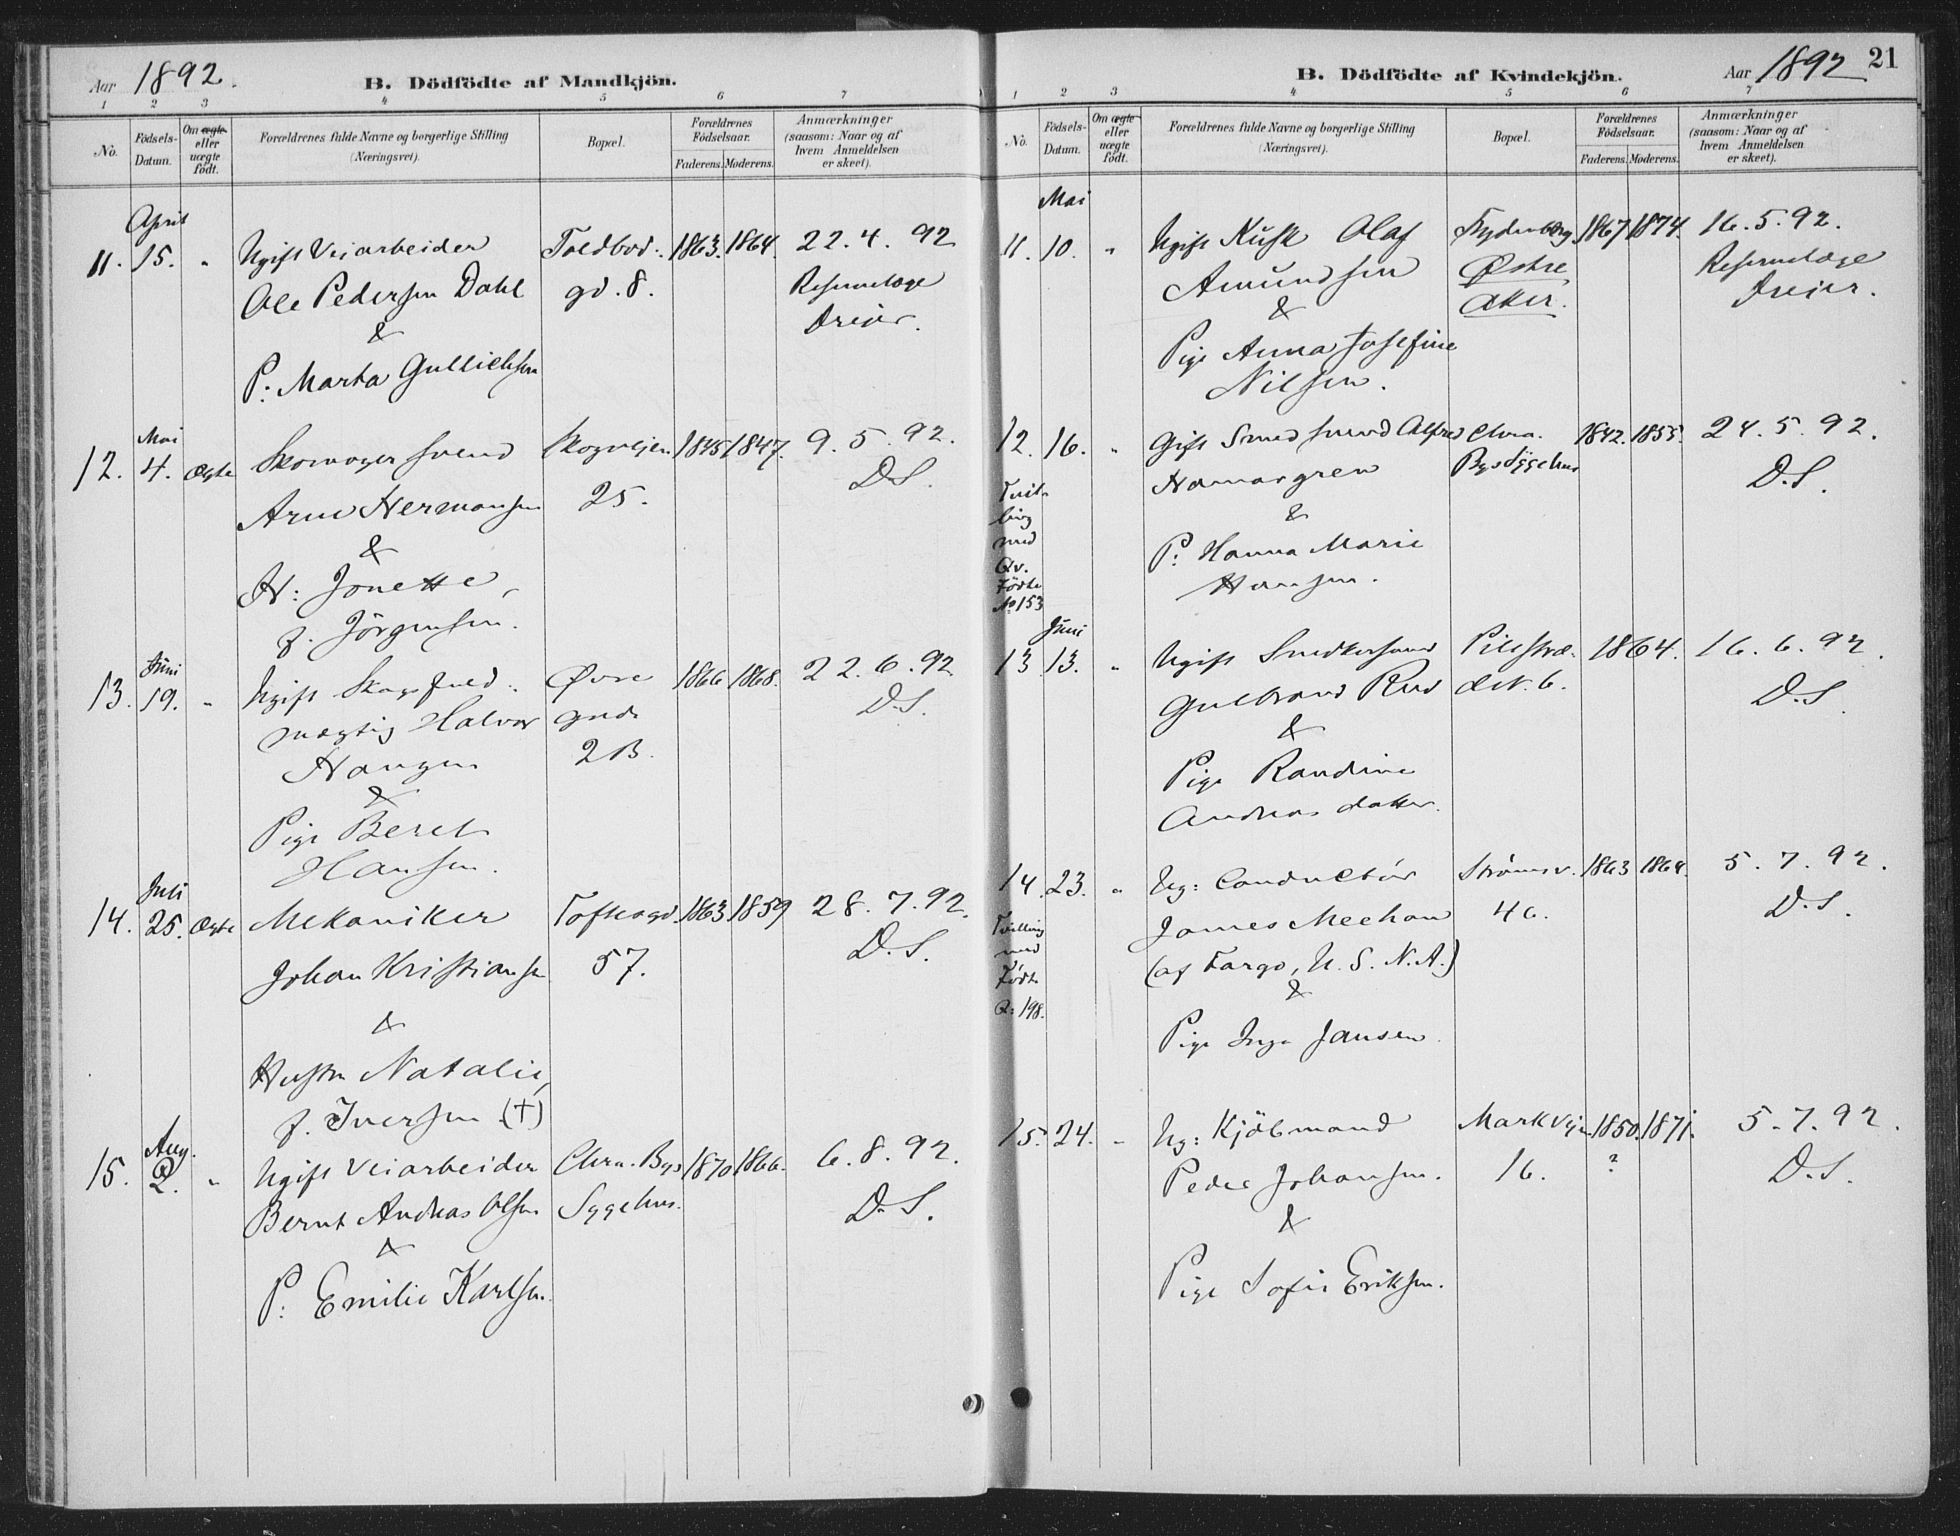 Aar 1892.
B. Dödfödte af Mandkjön.
1 2 3 4 5 6 7
No.
Födsels-Datum.
Om ægte eller uægte födt.
Forældrenes fulde Navne og borgerlige Stilling (Næringsvei).
Bopæl.
Forældrenes Födselsaar.
Faderens. Moderens.
Anmærkninger (saasom: Naar og af hvem Anmeldelsen er skeet).
April
11. 15. " Ugift Veiarbeider Toldbod- 1863. 1864. 22.4.92
Ole Pedersen Dahl gd. 8. Reservelæge
& Dreier.
P: Marta Gullichsen
Mai
12. 4. Ægte Skomagersvend Skogvejen 1845 1847. 9.5.92.
Arne Hermansen 25. D.S.
&
H: Jonette,
f. Jörgensen.
Juni
13. 19. " Ugift Skogsfuld- Øvre 1866 1868. 22.6.92
mægtig Halvor gade D.S.
Haugen 2B.
&
Pige Beret
Hansen.
Juli
14. 25. Ægte Mekaniker Toftesgd. 1863. 1859 28.7.92.
Johan Kristiansen 57. D.S.
&
Hustru Natalie,
f. Iversen (†)
Aug.
15. 2. " Ugift Veiarbeider Chra. Bys 1870 1866. 6.8.92.
Bernt Andreas Olsen Sygehus. D.S.
&
P: Emilie Karlsen.
B. Dödfödte af Kvindekjön.
Aar 1892 21
1 2 3 4 5 6 7
No.
Födsels-Datum.
Om ægte eller uægte födt.
Forældrenes fulde Navne og borgerlige Stilling (Næringsvei).
Bopæl.
Forældrenes Födselsaar.
Faderens. Moderens.
Anmærkninger (saasom: Naar og af hvem Anmeldelsen er skeet).
Mai
11. 10. " Ugift Kusk Olaf Frydenberg 1867 1874. 16.5.92.
Amundsen Østre Reservelæge
& Aker. Dreier.
Pige Anna Josefine
Nilsen.
12. 16. " Gift Smedsvend Alfred Chra. 1842. 1855. 24.5.92.
Hamargren Bys Sygehus D.S.
&
P: Hanna Marie
Hansen.
Tvilling
med
Qv.
Födte
No 153
Juni
13 13. " Ugift Snedkersvend Pilestræ- 1864. 16.6.92.
Gulbrand Rud det. 6. D.S.
&
Pige Randine
Andreasdatter.
14. 23. " Ug: Conductör Strömsv. 1863 1864. 5.7.92.
James Meehan 46. D.S.
(af Fargo, U.S.N.A.)
&
Pige Inga Jansen
Tvilling
med
Födt
Q: 198.
15. 24. " Ug: Kjöbmand Markvejen 1850. 1871. 5.7.92.
Peder Johansen. 16. ? D.S.
&
Pige Sofie Eriksen.